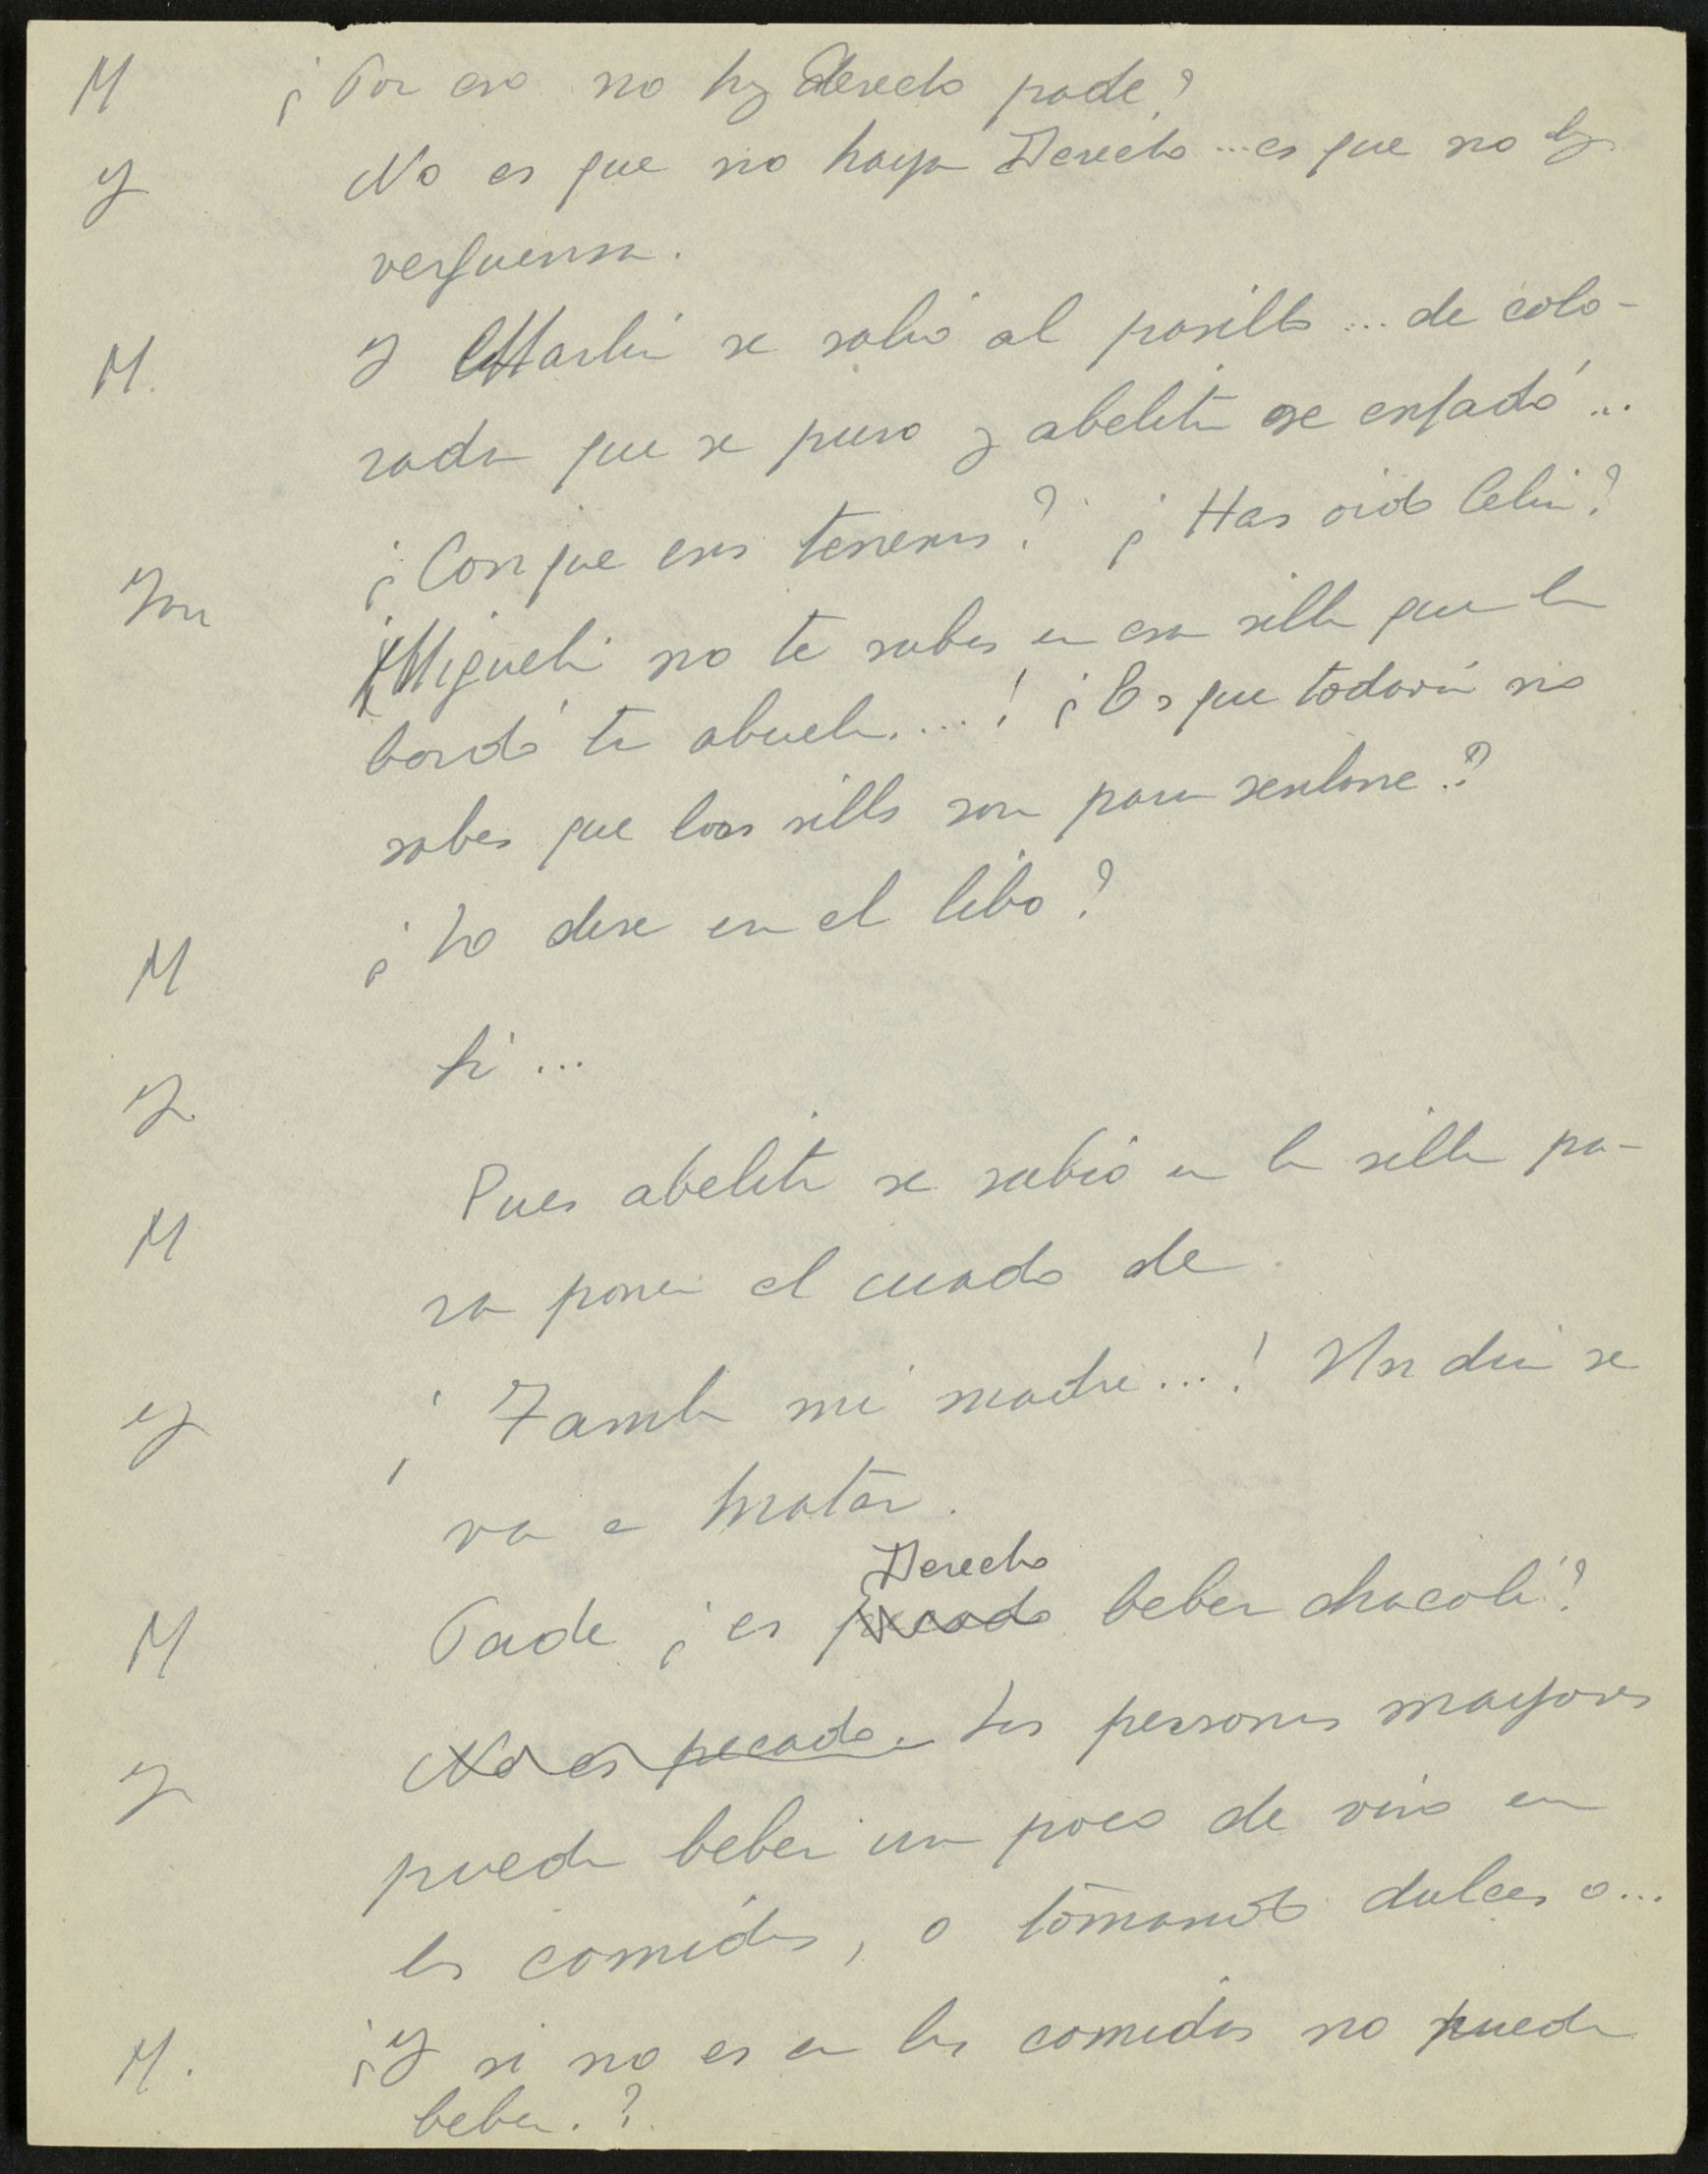 M ¿Por eso no hay Derecho padre?
Y No es que no haya Derecho ... es que no hay
vergüensa.
M. Y Martin se salió al pasillo ... de colo-
rada que se puso y abelita se enfadó ...
You ¿Con que esas tenemos? ¿Has oido Celin?
¡Migueli no te subes en esa silla que la
bordó tu abuela....! ¿Es que todavia no
sabes que las sillas son para sentarse?
M ¿Lo dise en el libro?
Y Si ...
M Pues abelita se subió en la silla pa-
ra poner el cuadro de
Y ¡También mi madre...! Un dia se
va a matar.
Derecho
M Padre ¿es pecado beber chacoli?
Y No es pecado. Las personas mayores
pueden beber un poco de vino en
las comidas, o tomando dulces o...
M. ¿Y si no es en las comidas no pueden
beber.?